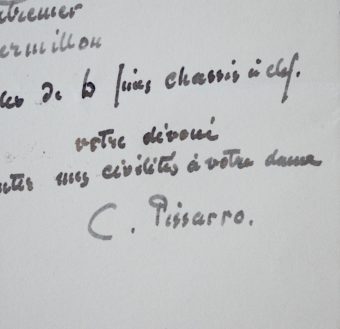 ermillon
de 6 fins chassis à clef.
votre dévoué
mes civilités à votre dame
C. Pissarro.